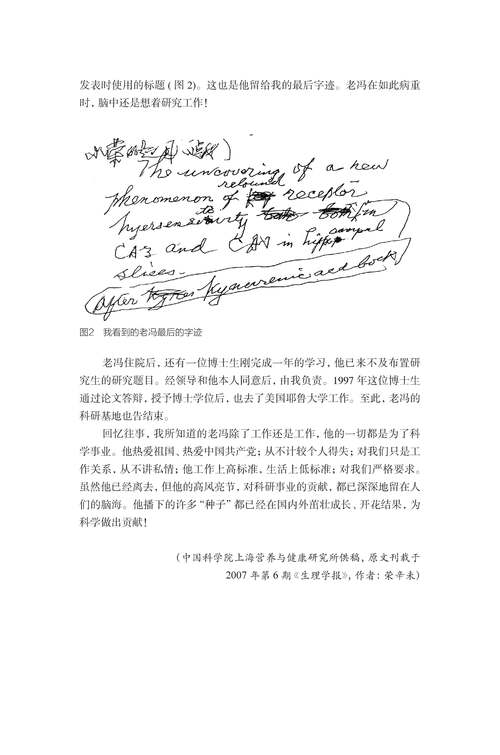 发表时使用的标题 ( 图 2)。这也是他留给我的最后字迹。老冯在如此病重
时，脑中还是想着研究工作！
小荣
The uncovering of a new
rebound
phenomenon of receptor
hypersensitivity
in
CA3 and CA1 in hippocampal
slices.
After kynurenic acid
图2 我看到的老冯最后的字迹
老冯住院后，还有一位博士生刚完成一年的学习，他已来不及布置研
究生的研究题目。经领导和他本人同意后，由我负责。1997 年这位博士生
通过论文答辩，授予博士学位后，也去了美国耶鲁大学工作。至此，老冯的
科研基地也告结束。
回忆往事，我所知道的老冯除了工作还是工作，他的一切都是为了科
学事业。他热爱祖国、热爱中国共产党；从不计较个人得失；对我们只是工
作关系，从不讲私情；他工作上高标准，生活上低标准；对我们严格要求。
虽然他已经离去，但他的高风亮节，对科研事业的贡献，都已深深地留在人
们的脑海。他播下的许多 “种子” 都已经在国内外茁壮成长、开花结果，为
科学做出贡献！
（中国科学院上海营养与健康研究所供稿，原文刊载于
2007 年第 6 期《生理学报》，作者：荣辛未）